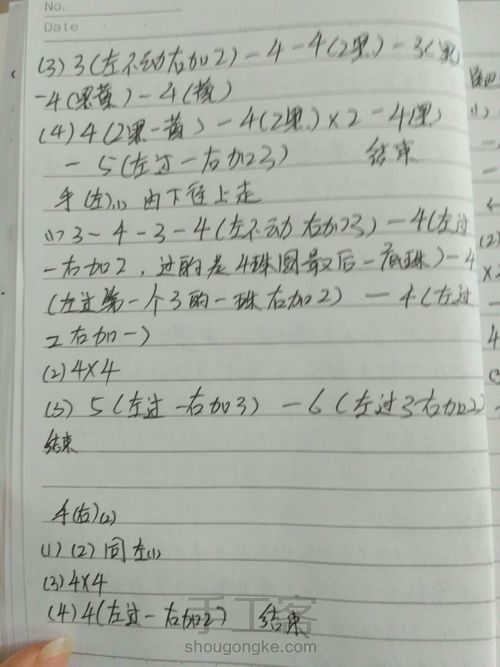 No.
Date
(3) 3(左不动右加2) - 4 - 4(2黑) - 3(黑)
-4(黑黄) - 4(黄)
(4) 4(2黑一黄) - 4(2黑)×2 - 4(黑)
- 5(左过一右加3) 结束
手(左)(1) 由下往上走
(1) 3 - 4 - 3 - 4(左不动右加3) - 4(左过
一右加2,过的是4珠圆最后一底珠) - 4
(左过第一个3的一珠右加2) - 4(左过
2右加一)
(2) 4×4
(3) 5(左过一右加3) - 6(左过3右加2)
结束
手(右)(2)
(1)(2)同左(1)
(3) 4×4
(4) 4(左过一右加2) 结束
手工客
shougongke.com